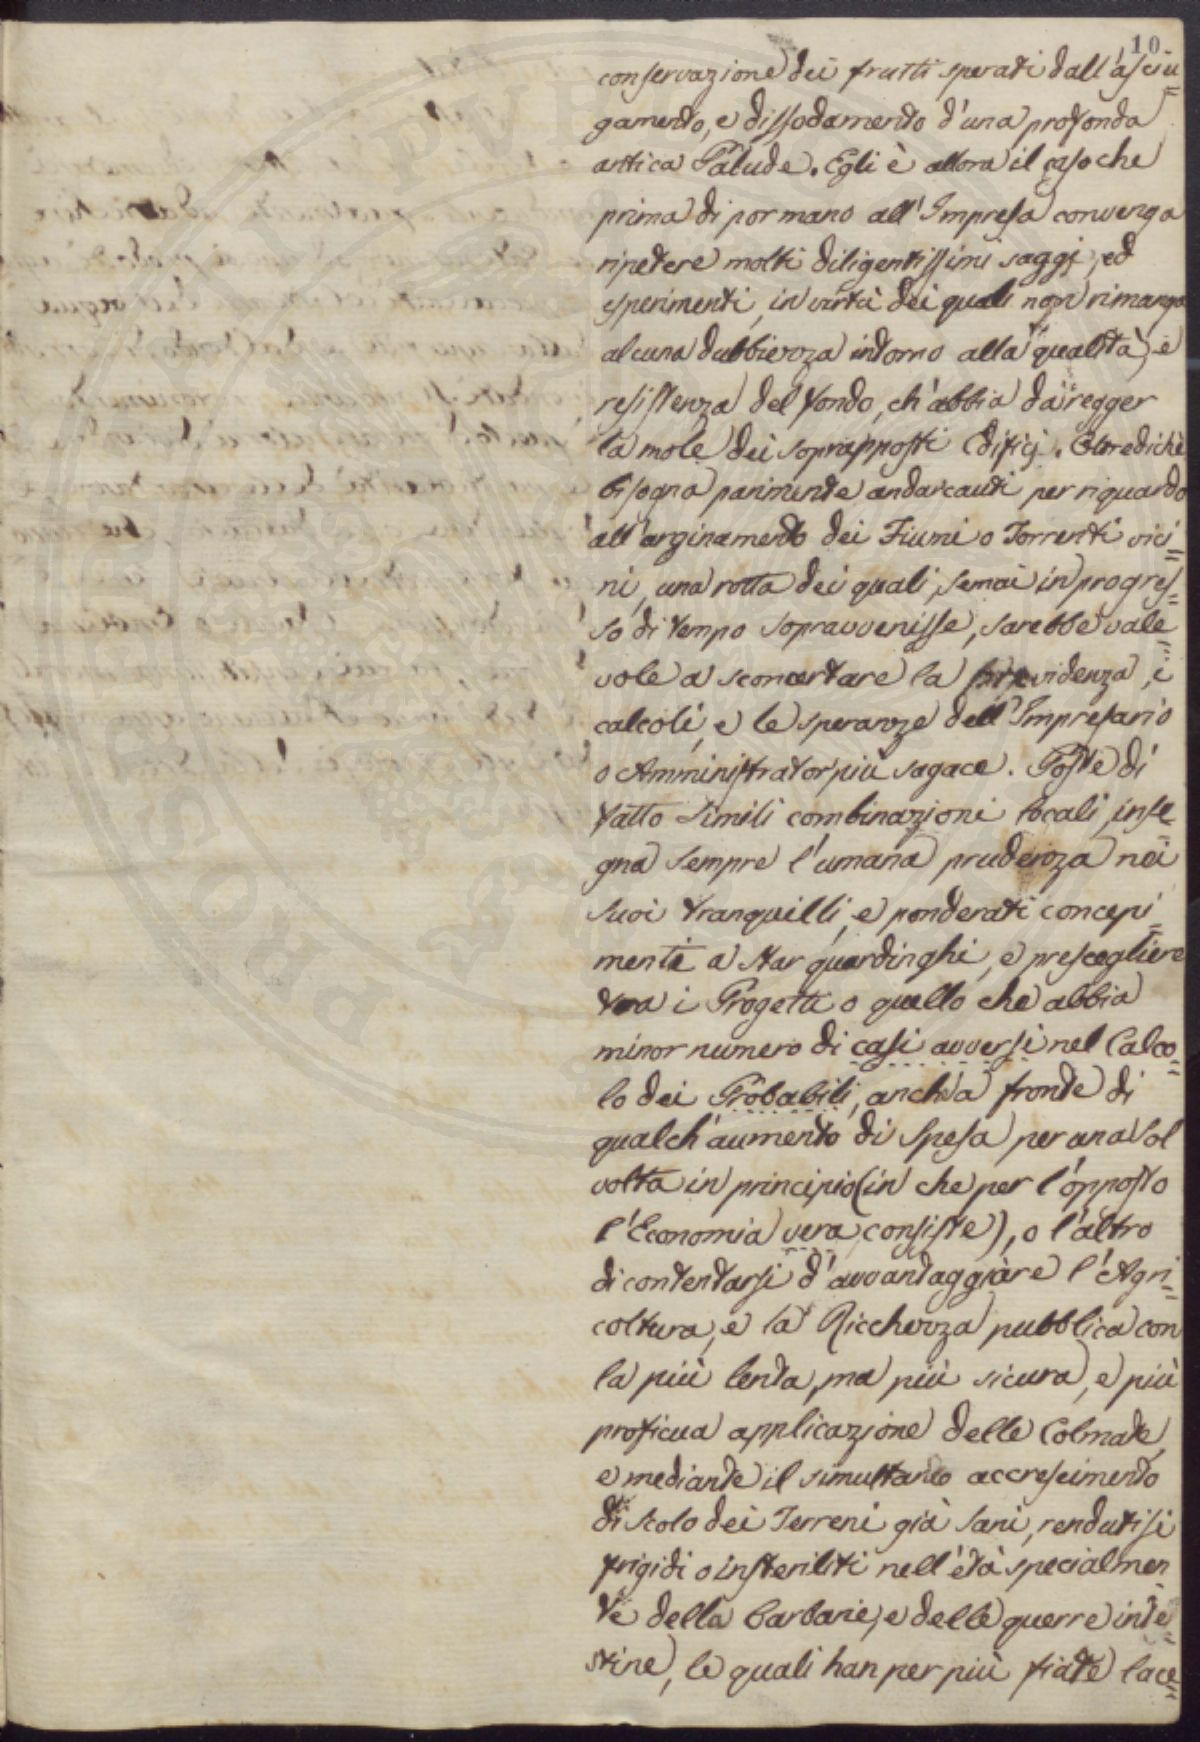 10.
conservazione dei frutti sperati dall'asciu=
gamento, e dissodamento d'una profonda
antica Palude. Egli è allora il caso che
prima di por mano all'Impresa convenga
ripetere molti diligentissimi saggj, ed
sperimenti, in virtù dei quali non rimanga
alcuna dubbiezza intorno alla qualità, e
resistenza del fondo, ch'abbia da regger
la mole dei soprapposti Edificj. Oltredichè
bisogna parimente andar cauti per riguardo
all'arginamento dei Fiumi o Torrenti vici=
ni, una rotta dei quali, se mai in progres=
so di tempo sopravvenisse, sarebbe vale=
vole a sconcertare la previdenza, i
calcoli, e le speranze dell'Impresario
o Amministrator più sagace. Poste di
fatto simili combinazioni locali, inse=
gna sempre l'umana prudenza nei
suoi tranquilli, e ponderati concepi=
menti a star guardinghi, e prescegliere
tra i Progetti o quello che abbia
minor numero di casi avversi nel Calco=
lo dei Probabili, anch'a fronte di
qualch'aumento di spesa per una sol
volta in principio (in che per l'opposto
l'Economia vera consiste), o l'altro
di contentarsi d'avvantaggiare l'Agri=
coltura, e la Ricchezza pubblica con
la più lenta, ma più sicura, e più
proficua applicazione delle Colmate,
e mediante il simultaneo accrescimento
di scolo dei Terreni già sani, rendutisi
frigidi o insteriliti nell'età specialmen=
te della barbarie, e delle guerre inte=
stine, le quali han per più fiate lace=